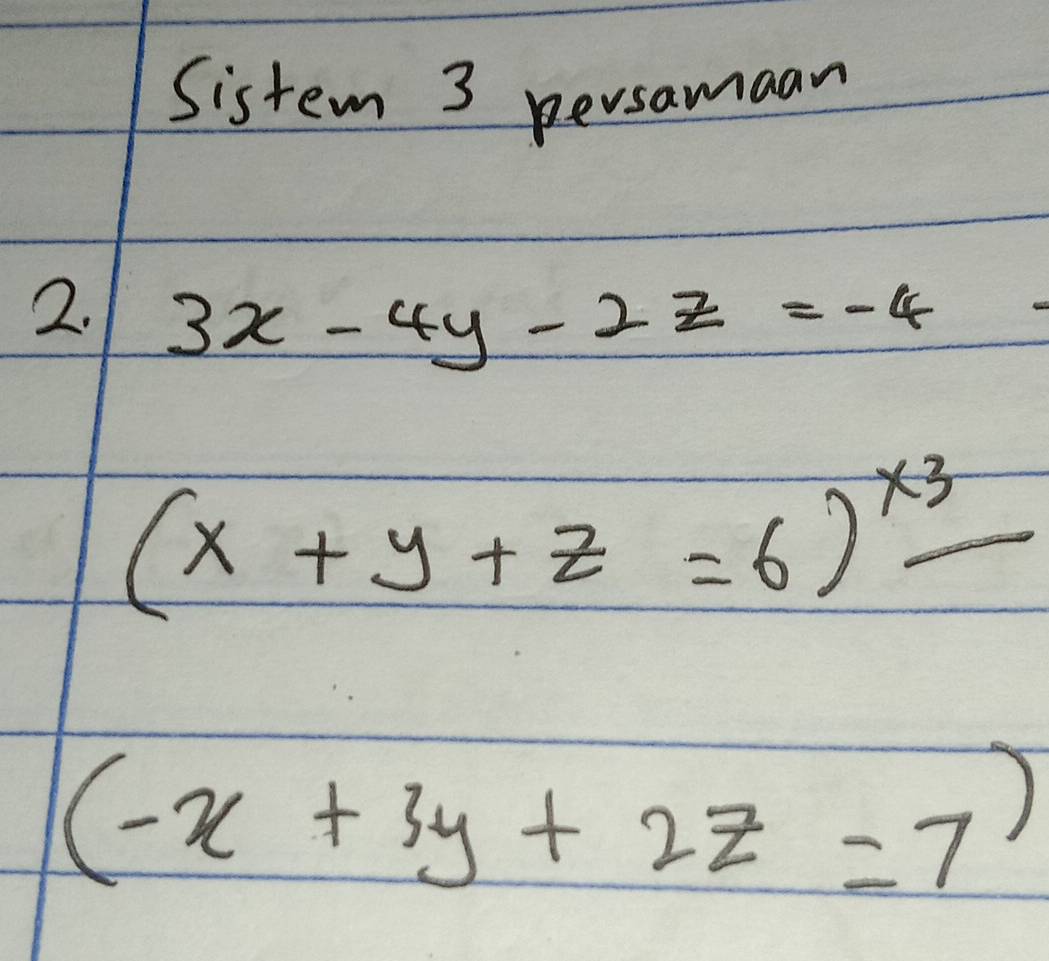 Sistem 3 persamaan
2. 3x - 4y - 2z = -4 -
(x + y + z = 6) ×3 —
(-x + 3y + 2z = 7)